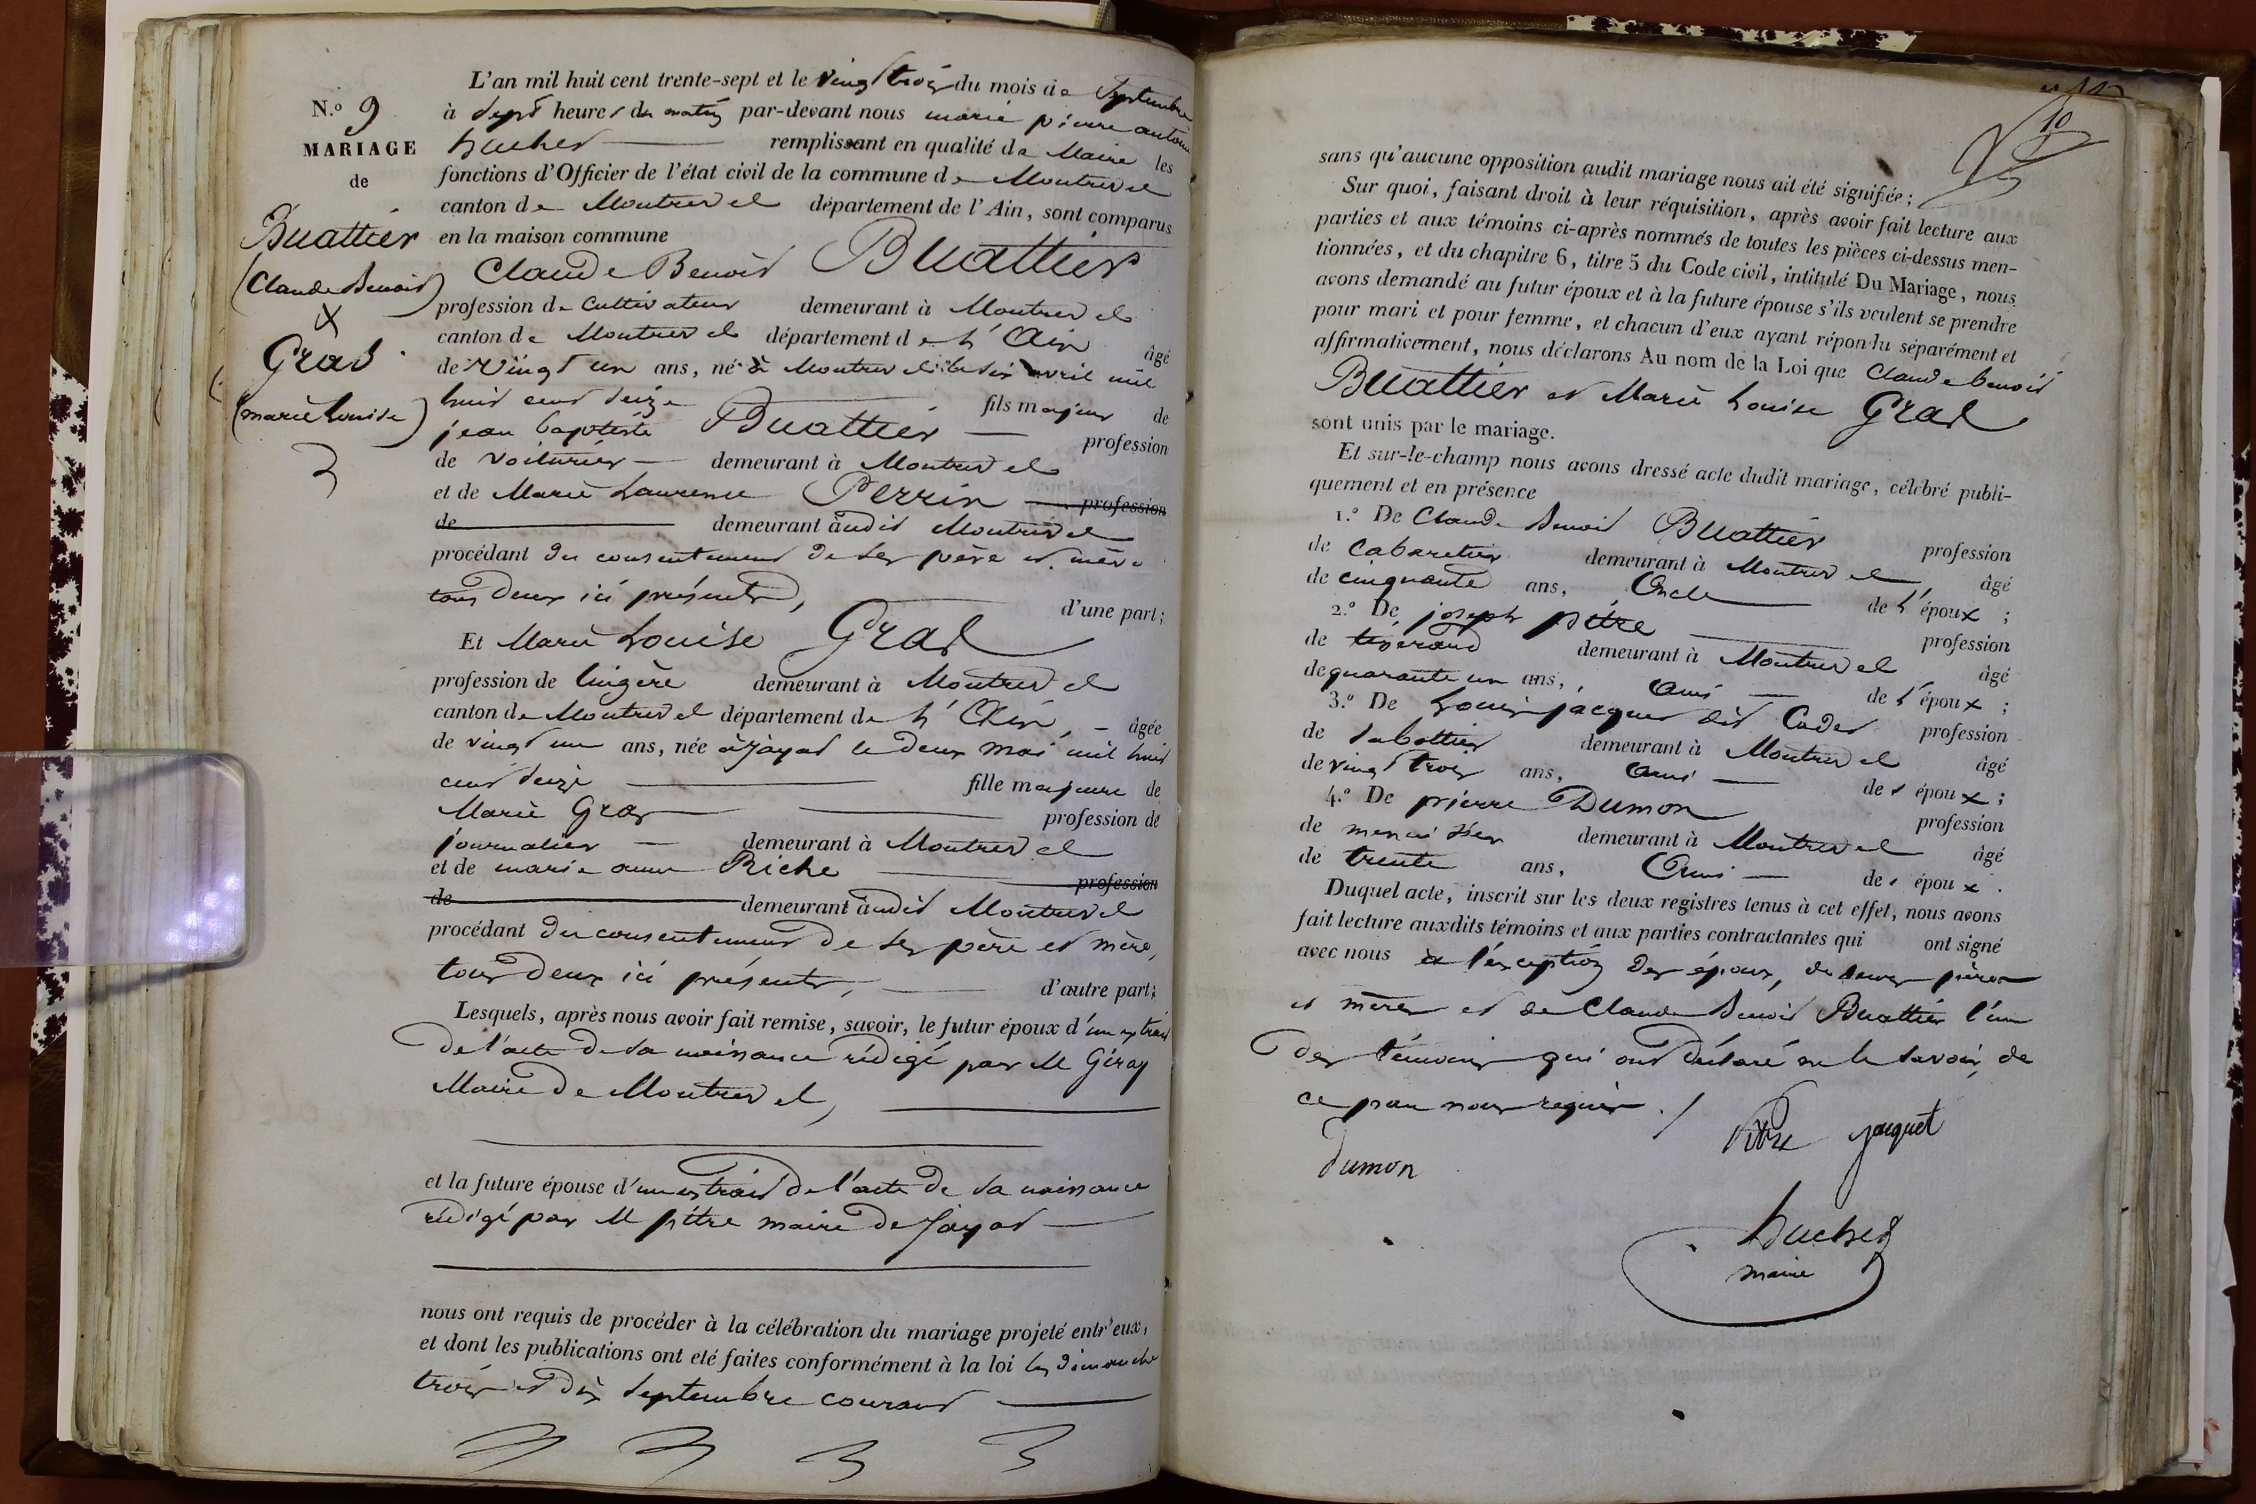 N.o 9
MARIAGE
de
Buattier
(Claude Benoit)
X
Gras
(marie Louise)
L'an mil huit cent trente-sept et le vingt trois du mois de Septembre
à sept heures du matin par-devant nous marie pierre antoine
huchet remplissant en qualité de Maire les
fonctions d'Officier de l'état civil de la commune de Montrevel
canton de Montrevel département de l'Ain, sont comparus
en la maison commune
Claude Benoit Buattier
profession de Cultivateur demeurant à Montrevel
canton de Montrevel département de L'Ain âgé
de Vingt un ans, né à Montrevel avril mil
huit cent seize fils majeur de
jean baptiste Buattier profession
de Voiturier demeurant à Montrevel
et de Marie Laurence Perrin profession
de demeurant audit Montrevel
procédant du consentement de ses père et mère
tous deux ici présents, d'une part;
Et Marie Louise Gras
profession de lingère demeurant à Montrevel
canton de Montrevel département de L'Ain, âgée
de vingt un ans, née à Jayat le deux mai mil huit
cent seize fille majeure de
Marie Gras profession de
journalier demeurant à Montrevel
et de marie anne Riche profession
de demeurant audit Montrevel
procédant du consentement de ses père et mère,
tous deux ici présents, d'autre part;
Lesquels, après nous avoir fait remise, savoir, le futur époux d'un extrait
De l'acte De sa naissance rédigé par M
Maire De Montrevel,
et la future épouse d'un extrait De l'acte De sa naissance
rédigé par M pitre maire De Jayat
nous ont requis de procéder à la célébration du mariage projeté entr'eux,
et dont les publications ont été faites conformément à la loi les Dimanche
trois et Dix Septembre courant
10
sans qu'aucune opposition audit mariage nous ait été signifiée;
Sur quoi, faisant droit à leur réquisition, après avoir fait lecture aux
parties et aux témoins ci-après nommés de toutes les pièces ci-dessus men-
tionnées, et du chapitre 6, titre 5 du Code civil, intitulé Du Mariage, nous
avons demandé au futur époux et à la future épouse s'ils veulent se prendre
pour mari et pour femme, et chacun d'eux ayant répondu séparément et
affirmativement, nous déclarons Au nom de la Loi que Claude benoit
Buattier et Marie Louise Gras
sont unis par le mariage.
Et sur-le-champ nous avons dressé acte dudit mariage, célébré publi-
quement et en présence
1.o De Claude Benoit Buattier profession
de Cabaretier demeurant à Montrevel âgé
de cinquante ans, Oncle de L'époux ;
2.o De joseph pitre profession
de tisserand demeurant à Montrevel âgé
de quarante un ans, Ami de L'époux ;
3.o De Louis jacques dit Cadet profession
de Sabottier demeurant à Montrevel âgé
de vingt trois ans, Ami des époux ;
4.o De pierre Dumon profession
de menuisier demeurant à Montrevel âgé
de trente ans, Ami des époux .
Duquel acte, inscrit sur les deux registres tenus à cet effet, nous avons
fait lecture auxdits témoins et aux parties contractantes qui ont signé
avec nous à l'exception Des époux, de leurs pères
et mères et de Claude Benoit Buattier l'un
Des témoins qui ont Déclaré ne le savoir, de
ce par nous requis ./
Pitre jaquet
Dumon
huchet
maire